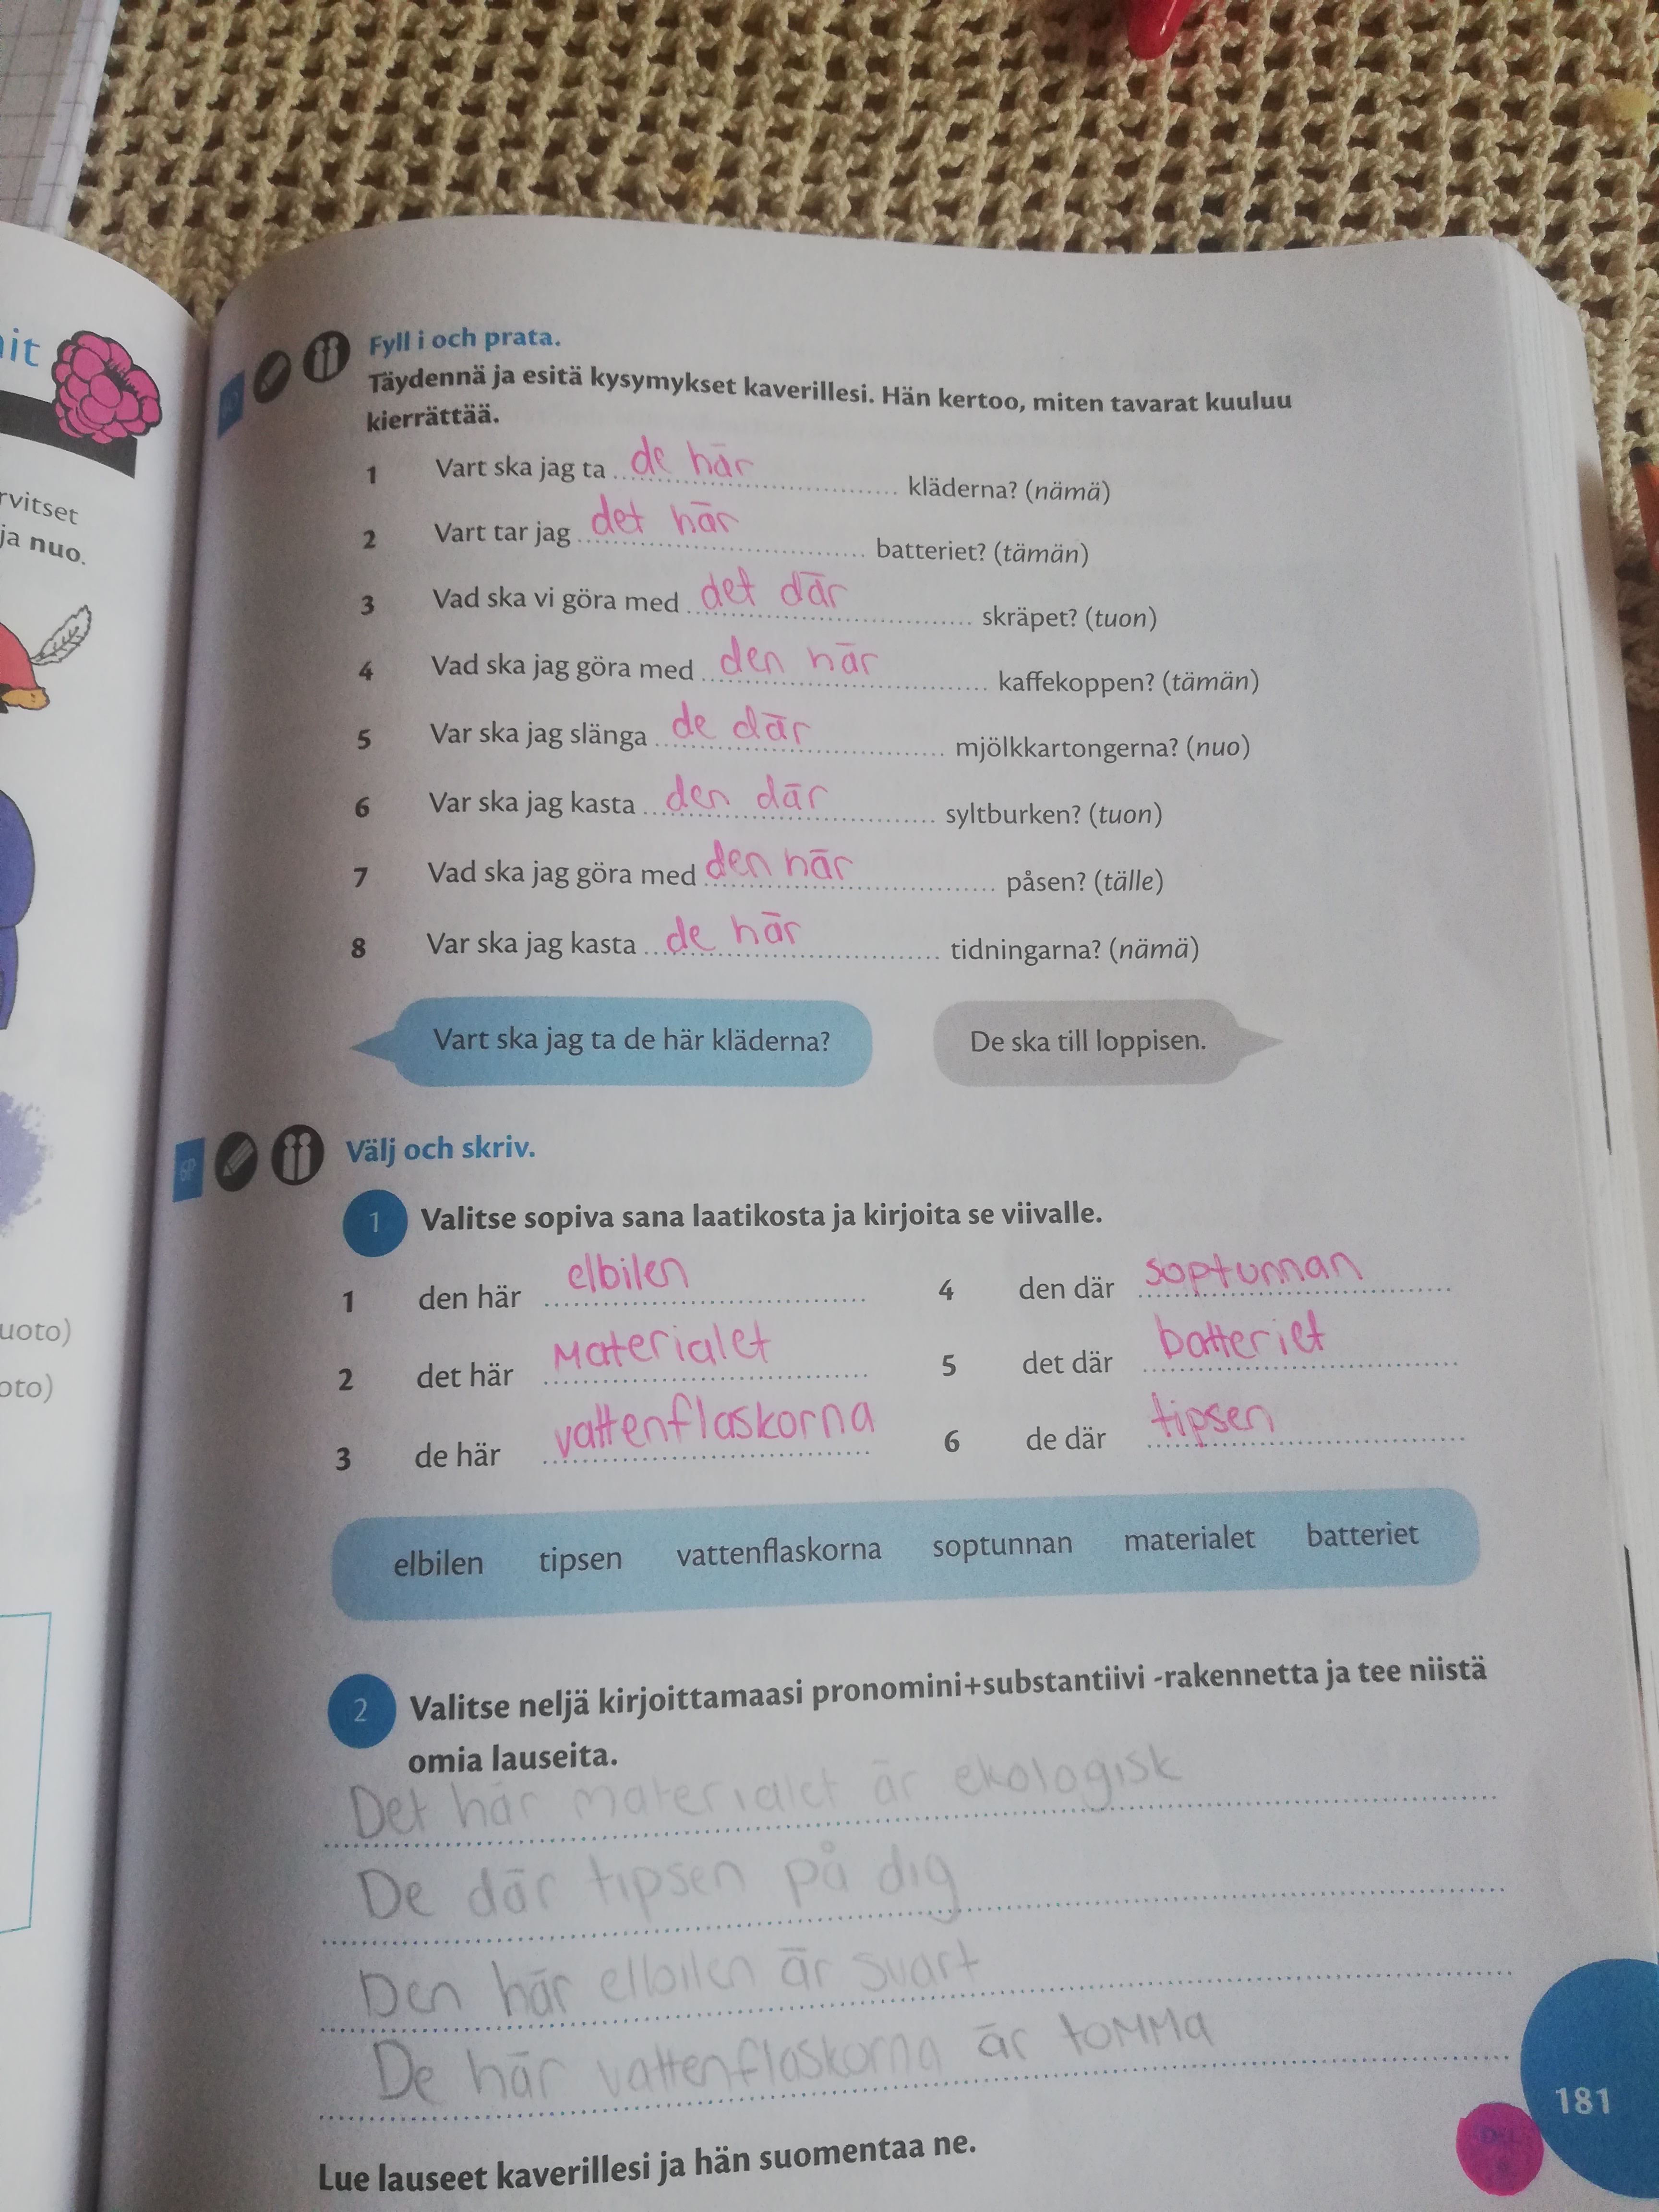 it
rvitset
ja nuo.
uoto)
oto)
Fyll i och prata.
Täydennä ja esitä kysymykset kaverillesi. Hän kertoo, miten tavarat kuuluu
kierrättää.
1 Vart ska jag ta de här kläderna? (nämä)
2 Vart tar jag det här batteriet? (tämän)
3 Vad ska vi göra med det där skräpet? (tuon)
4 Vad ska jag göra med den här kaffekoppen? (tämän)
5 Var ska jag slänga de där mjölkkartongerna? (nuo)
6 Var ska jag kasta den där syltburken? (tuon)
7 Vad ska jag göra med den här påsen? (tälle)
8 Var ska jag kasta de här tidningarna? (nämä)
Vart ska jag ta de här kläderna? De ska till loppisen.
Välj och skriv.
1 Valitse sopiva sana laatikosta ja kirjoita se viivalle.
1 den här elbilen 4 den där soptunnan
2 det här materialet 5 det där batteriet
3 de här vattenflaskorna 6 de där tipsen
elbilen tipsen vattenflaskorna soptunnan materialet batteriet
2 Valitse neljä kirjoittamaasi pronomini+substantiivi -rakennetta ja tee niistä
omia lauseita.
Det här materialet är ekologisk
De där tipsen på dig
Den här elbilen är svart
De här vattenflaskorna är tomma
Lue lauseet kaverillesi ja hän suomentaa ne.
181